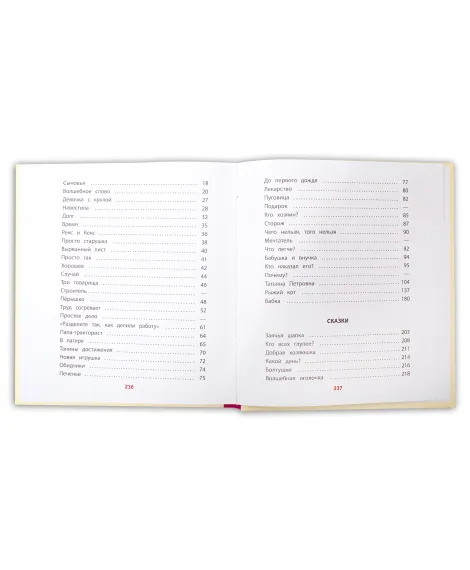 Сыновья 18
Волшебное слово 20
Девочка с куклой 27
Навестила 28
Долг 32
Время 35
Рекс и Кекс 36
Просто старушка 38
Вырванный лист 40
Просто так 41
Хорошее 42
Случай 44
Три товарища 46
Строитель —
Пёрышко 48
Труд согревает 52
Простое дело —
«Разделите так, как делили работу» 61
Папа-тракторист 64
В лагере 65
Танины достижения 70
Новая игрушка 72
Обидчики 74
Печенье 75
236
До первого дождя 77
Лекарство 80
Пуговица 82
Подарок —
Кто хозяин? 85
Сторож 87
Чего нельзя, того нельзя 90
Мечтатель —
Что легче? 92
Бабушка и внучка 94
Кто наказал его? 95
Почему? —
Татьяна Петровна 104
Рыжий кот 137
Бабка 180
СКАЗКИ
Заячья шапка 203
Кто всех глупее? 208
Добрая хозяюшка 211
Какой день? 214
Болтушки 216
Волшебная иголочка 218
237